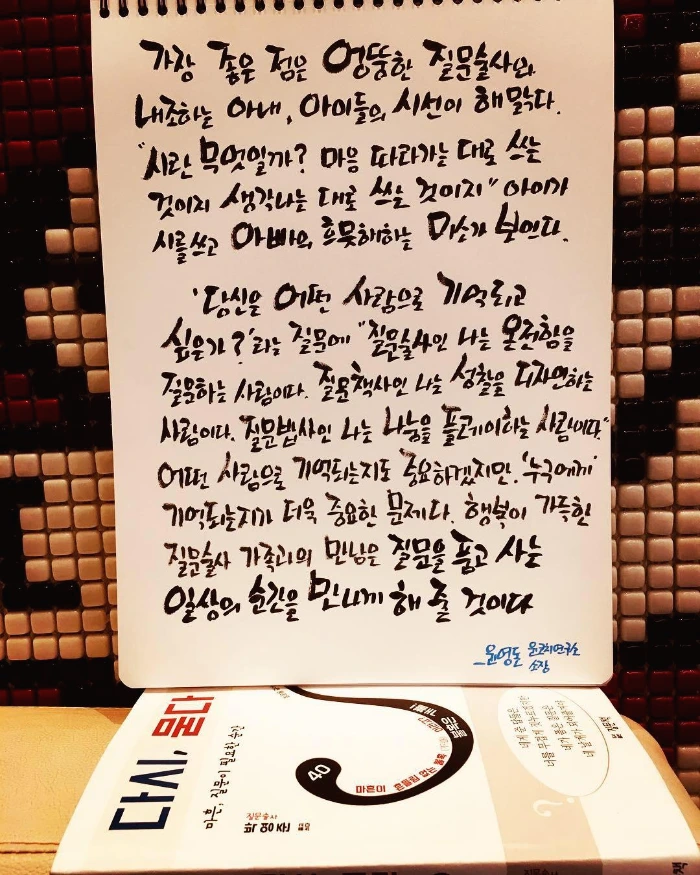 가장 좋은 점은 엉뚱한 질문술사와
내조하는 아내, 아이들의 시선이 해맑다.
"시란 무엇일까? 마음 따라가는 대로 쓰는
것이지 생각나는 대로 쓰는 것이지" 아이가
시를 쓰고 아빠의 흐뭇해하는 미소가 보인다.
'당신은 어떤 사람으로 기억되고
싶은가?'라는 질문에 "질문술사인 나는 온전함을
질문하는 사람이다. 질문책사인 나는 성찰을 디자인하는
사람이다. 질문법사인 나는 나눔을 플레이하는 사람이다."
어떤 사람으로 기억되는지도 중요하겠지만, '누구에게'
기억되는지가 더욱 중요한 문제다. 행복이 가득한
질문술사 가족과의 만남은 질문을 품고 사는
일상의 순간을 만나게 해 줄 것이다
_윤영돈 윤코치연구소
소장
다시, 묻다
마흔, 질문이 필요한 순간
질문술사
박영준
40
마흔이